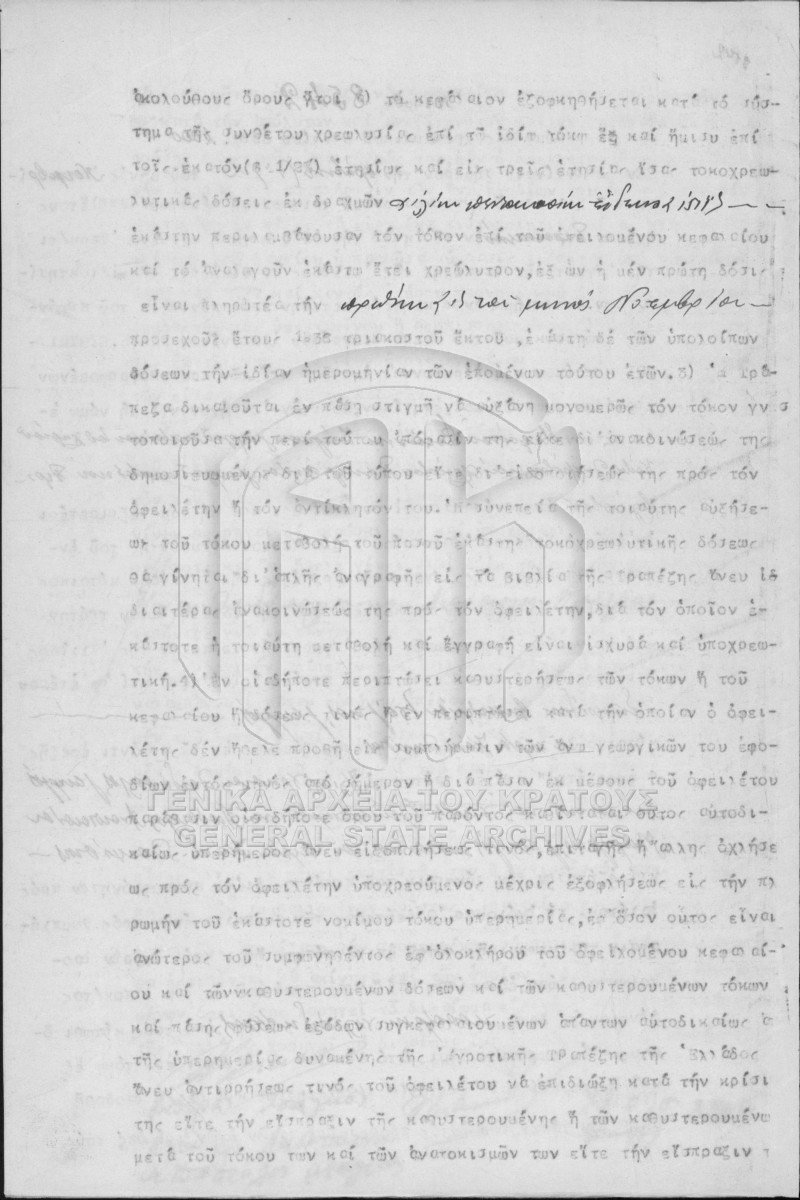 ἀκολούθους ὅρους ἤτοι ) τό κεφάλαιον ἐξοφληθήσεται κατά τό σύσ-
τημα τῆς συνθέτου χρεωλυσίας ἐπί τῷ ἰδίῳ τόκῳ ἕξ καί ἥμισυ ἐπί
τοῖς ἑκατόν( 1/2%) ἐτησίως καί εἰς τρεῖς ἐτησίας ἴσας τοκοχρεω-
λυτικάς δόσεις ἐκ δραχμῶν
ἑκάστην περιλαμβάνουσαν τόν τόκον ἐπί τοῦ ὀφειλομένου κεφαλαίου
καί τό ἀναλογοῦν ἑκάστῳ ἔτει χρεώλυτρον,ἐξ ὧν ἡ μέν πρώτη δόσις
εἶναι πληρωτέα τήν τοῦ μηνός Νοεμβρίου
προσεχοῦς ἔτους τριακοστοῦ ἕκτου ,ἑκάστη δέ τῶν ὑπολοίπων
δόσεων τήν ἰδίαν ἡμερομηνίαν τῶν ἑπομένων τούτου ἐτῶν.3) Ἡ Τρά-
πεζα δικαιοῦται ἐν πάσῃ στιγμῇ νά αὐξάνῃ μονομερῶς τόν τόκον γνω
τοποιοῦσα τήν περί τούτου ἀπόφασίν της εἴτε δι' ἀνακοινώσεώς της
δημοσιευομένης διά τοῦ τύπου εἴτε δι'εἰδοποιήσεώς της πρός τόν
ὀφειλέτην ἤ τόν ἀντίκλητόν του. συνεπείᾳ τῆς τοιαύτης αὐξήσε-
ως τοῦ τόκου μεταβολή τοῦ ποσοῦ ἑκάστης τοκοχρεωλυτικῆς δόσεως
θά γίνηται δι'ἁπλῆς ἀναγραφῆς εἰς τά βιβλία τῆς Τραπέζης ἄνευ ἰδ
διαιτέρας ἀνακοινώσεώς της πρός τόν ὀφειλέτην,διά τόν ὁποῖον ἑ-
κάστοτε ἡ τοιαύτη μεταβολή καί ἐγγραφή εἶναι ἰσχυρά καί ὑποχρεω-
τική.4) Ἐν οἱᾳδήποτε περιπτώσει καθυστερήσεως τῶν τόκων ἤ τοῦ
κεφαλαίου ἤ δόσεως τινός ἤ ἐν περιπτώσει κατά τήν ὁποίαν ὁ ὀφει-
λέτης δέν ἤθελε προβῆ εἰς συμπλήρωσιν τῶν ἄνω γεωργικῶν του ἐφο-
δίων ἐντός μηνός ἀπό σήμερον ἤ διά πᾶσαν ἐκ μέρους τοῦ ὀφειλέτου
παράβασιν οἱουδήποτε ὅρου τοῦ παρόντος καθίσταται οὗτος αὐτοδι-
καίως ὑπερήμερος ἄνευ εἰδοποιήσεως τινός,ἐπιταγῆς ἤ ἄλλης ὀχλήσε
ως πρός τόν ὀφειλέτην ὑποχρεούμενος μέχρις ἐξοφλήσεως εἰς τήν πλ
ρωμήν τοῦ ἑκάστοτε νομίμου τόκου ὑπερημερίας,ἐφ'ὅσον οὗτος εἶναι
ἀνώτερος τοῦ συμφωνηθέντος ἐφ'ὁλοκλήρου τοῦ ὀφειλομένου κεφαλαί-
ου καί τῶν καθυστερουμένων δόσεων καί τῶν καθυστερουμένων τόκων
καί πάσης φύσεως ἐξόδων συγκεφαλαιουμένων ἁπάντων αὐτοδικαίως
τῆς ὑπερημερίας δυναμένης τῆς Ἀγροτικῆς Τραπέζης τῆς Ἑλλάδος
ἄνευ ἀντιρρήσεως τινός τοῦ ὀφειλέτου νά ἐπιδιώξῃ κατά τήν κρίσι
της εἴτε τήν εἴσπραξιν τῆς καθυστερουμένης ἤ τῶν καθυστερουμένω
μετά τοῦ τόκου των καί τῶν ἀνατοκισμῶν των εἴτε τήν εἴσπραξιν τ
ΓΕΝΙΚΑ ΑΡΧΕΙΑ ΤΟΥ ΚΡΑΤΟΥΣ
GENERAL STATE ARCHIVES